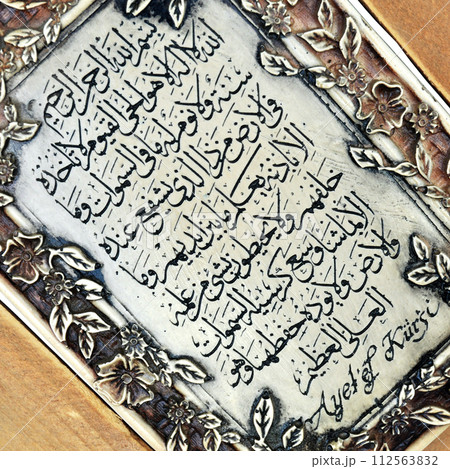 بسم الله الرحمن الرحيم
الله لا اله الا هو الحي القيوم لا تاخذه
سنة ولا نوم له ما في السموات وما
في الارض من ذا الذي يشفع عنده
الا باذنه يعلم ما بين ايديهم وما
خلفهم ولا يحيطون بشيء من علمه
الا بما شاء وسع كرسيه السموات
والارض ولا يوده حفظهما وهو
العلي العظيم
Ayet'el Kürsi
pixta.jp - 112563832